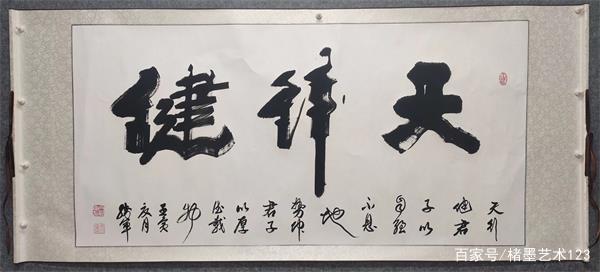 天行健
天行
健君
子以
自强
不息
地
势坤
君子
以厚
德载
物
壬寅
夏月
百家号/楮墨艺术123